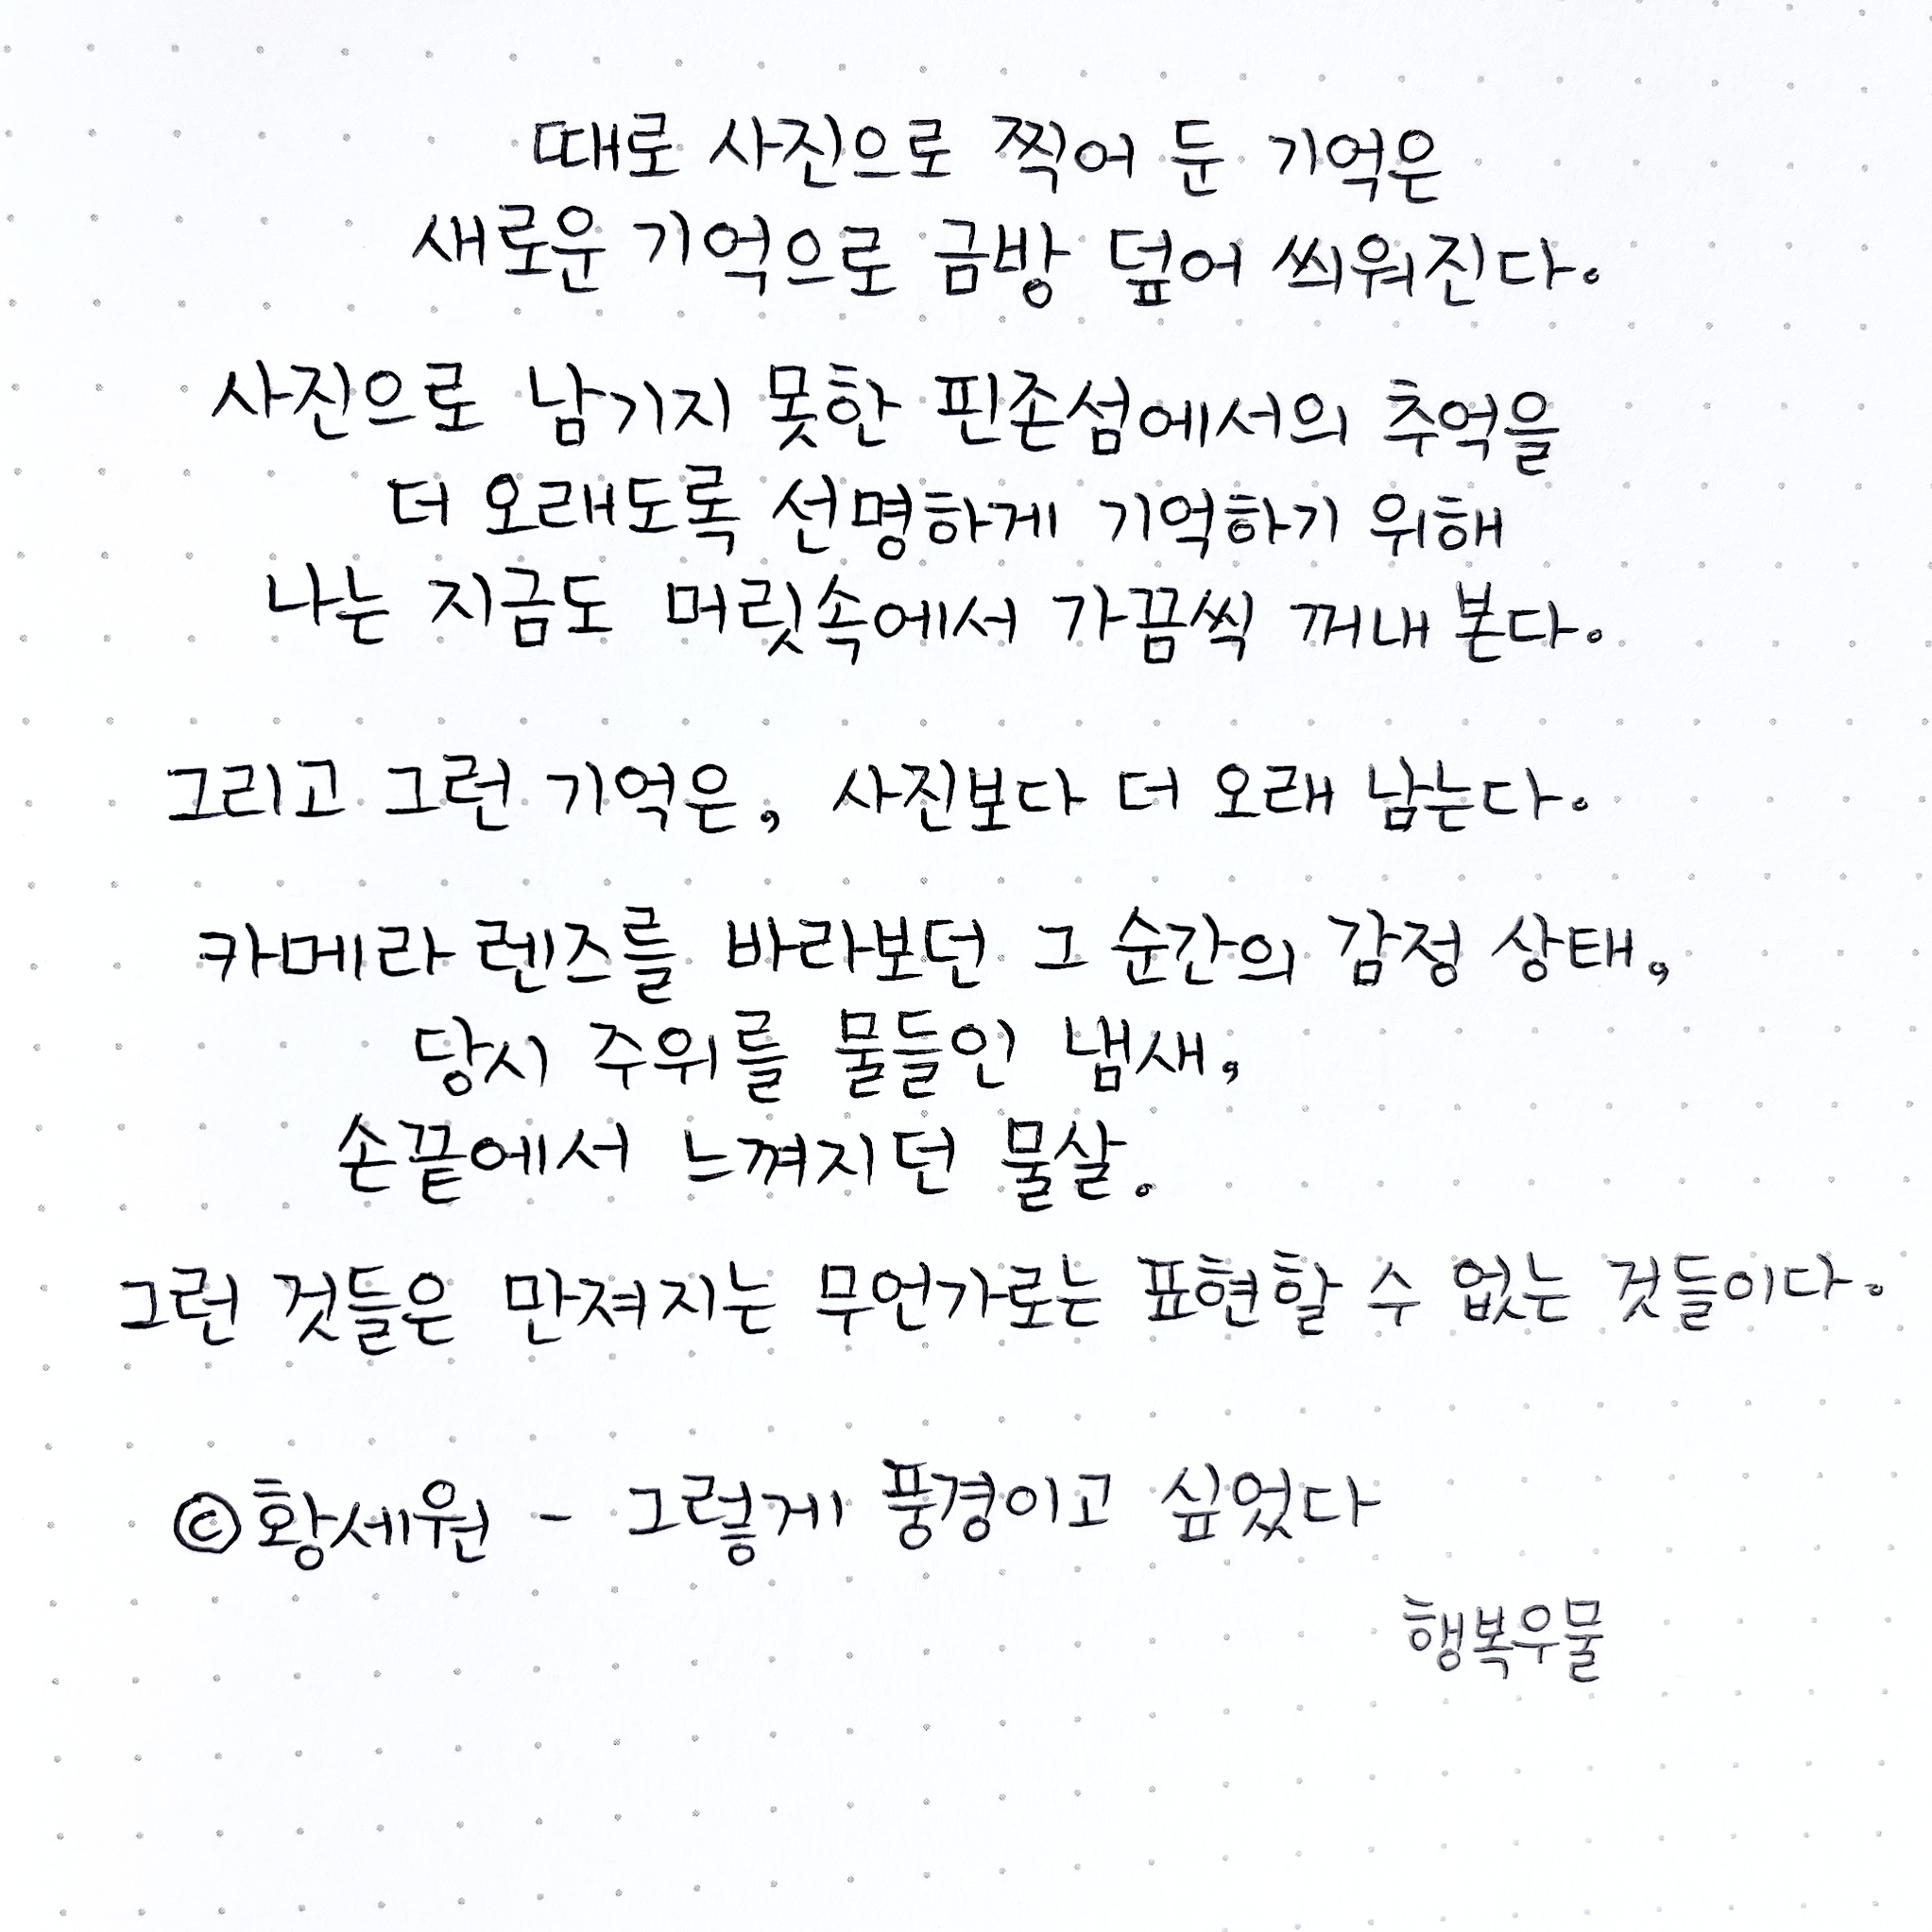 때로 사진으로 찍어 둔 기억은
새로운 기억으로 금방 덮어 씌워진다.
사진으로 남기지 못한 핀존섬에서의 추억을
더 오래도록 선명하게 기억하기 위해
나는 지금도 머릿속에서 가끔씩 꺼내 본다.
그리고 그런 기억은, 사진보다 더 오래 남는다.
카메라 렌즈를 바라보던 그 순간의 감정 상태,
당시 주위를 물들인 냄새,
손끝에서 느껴지던 물살.
그런 것들은 만져지는 무언가로는 표현할 수 없는 것들이다.
©황세원 - 그렇게 풍경이고 싶었다
행복우물